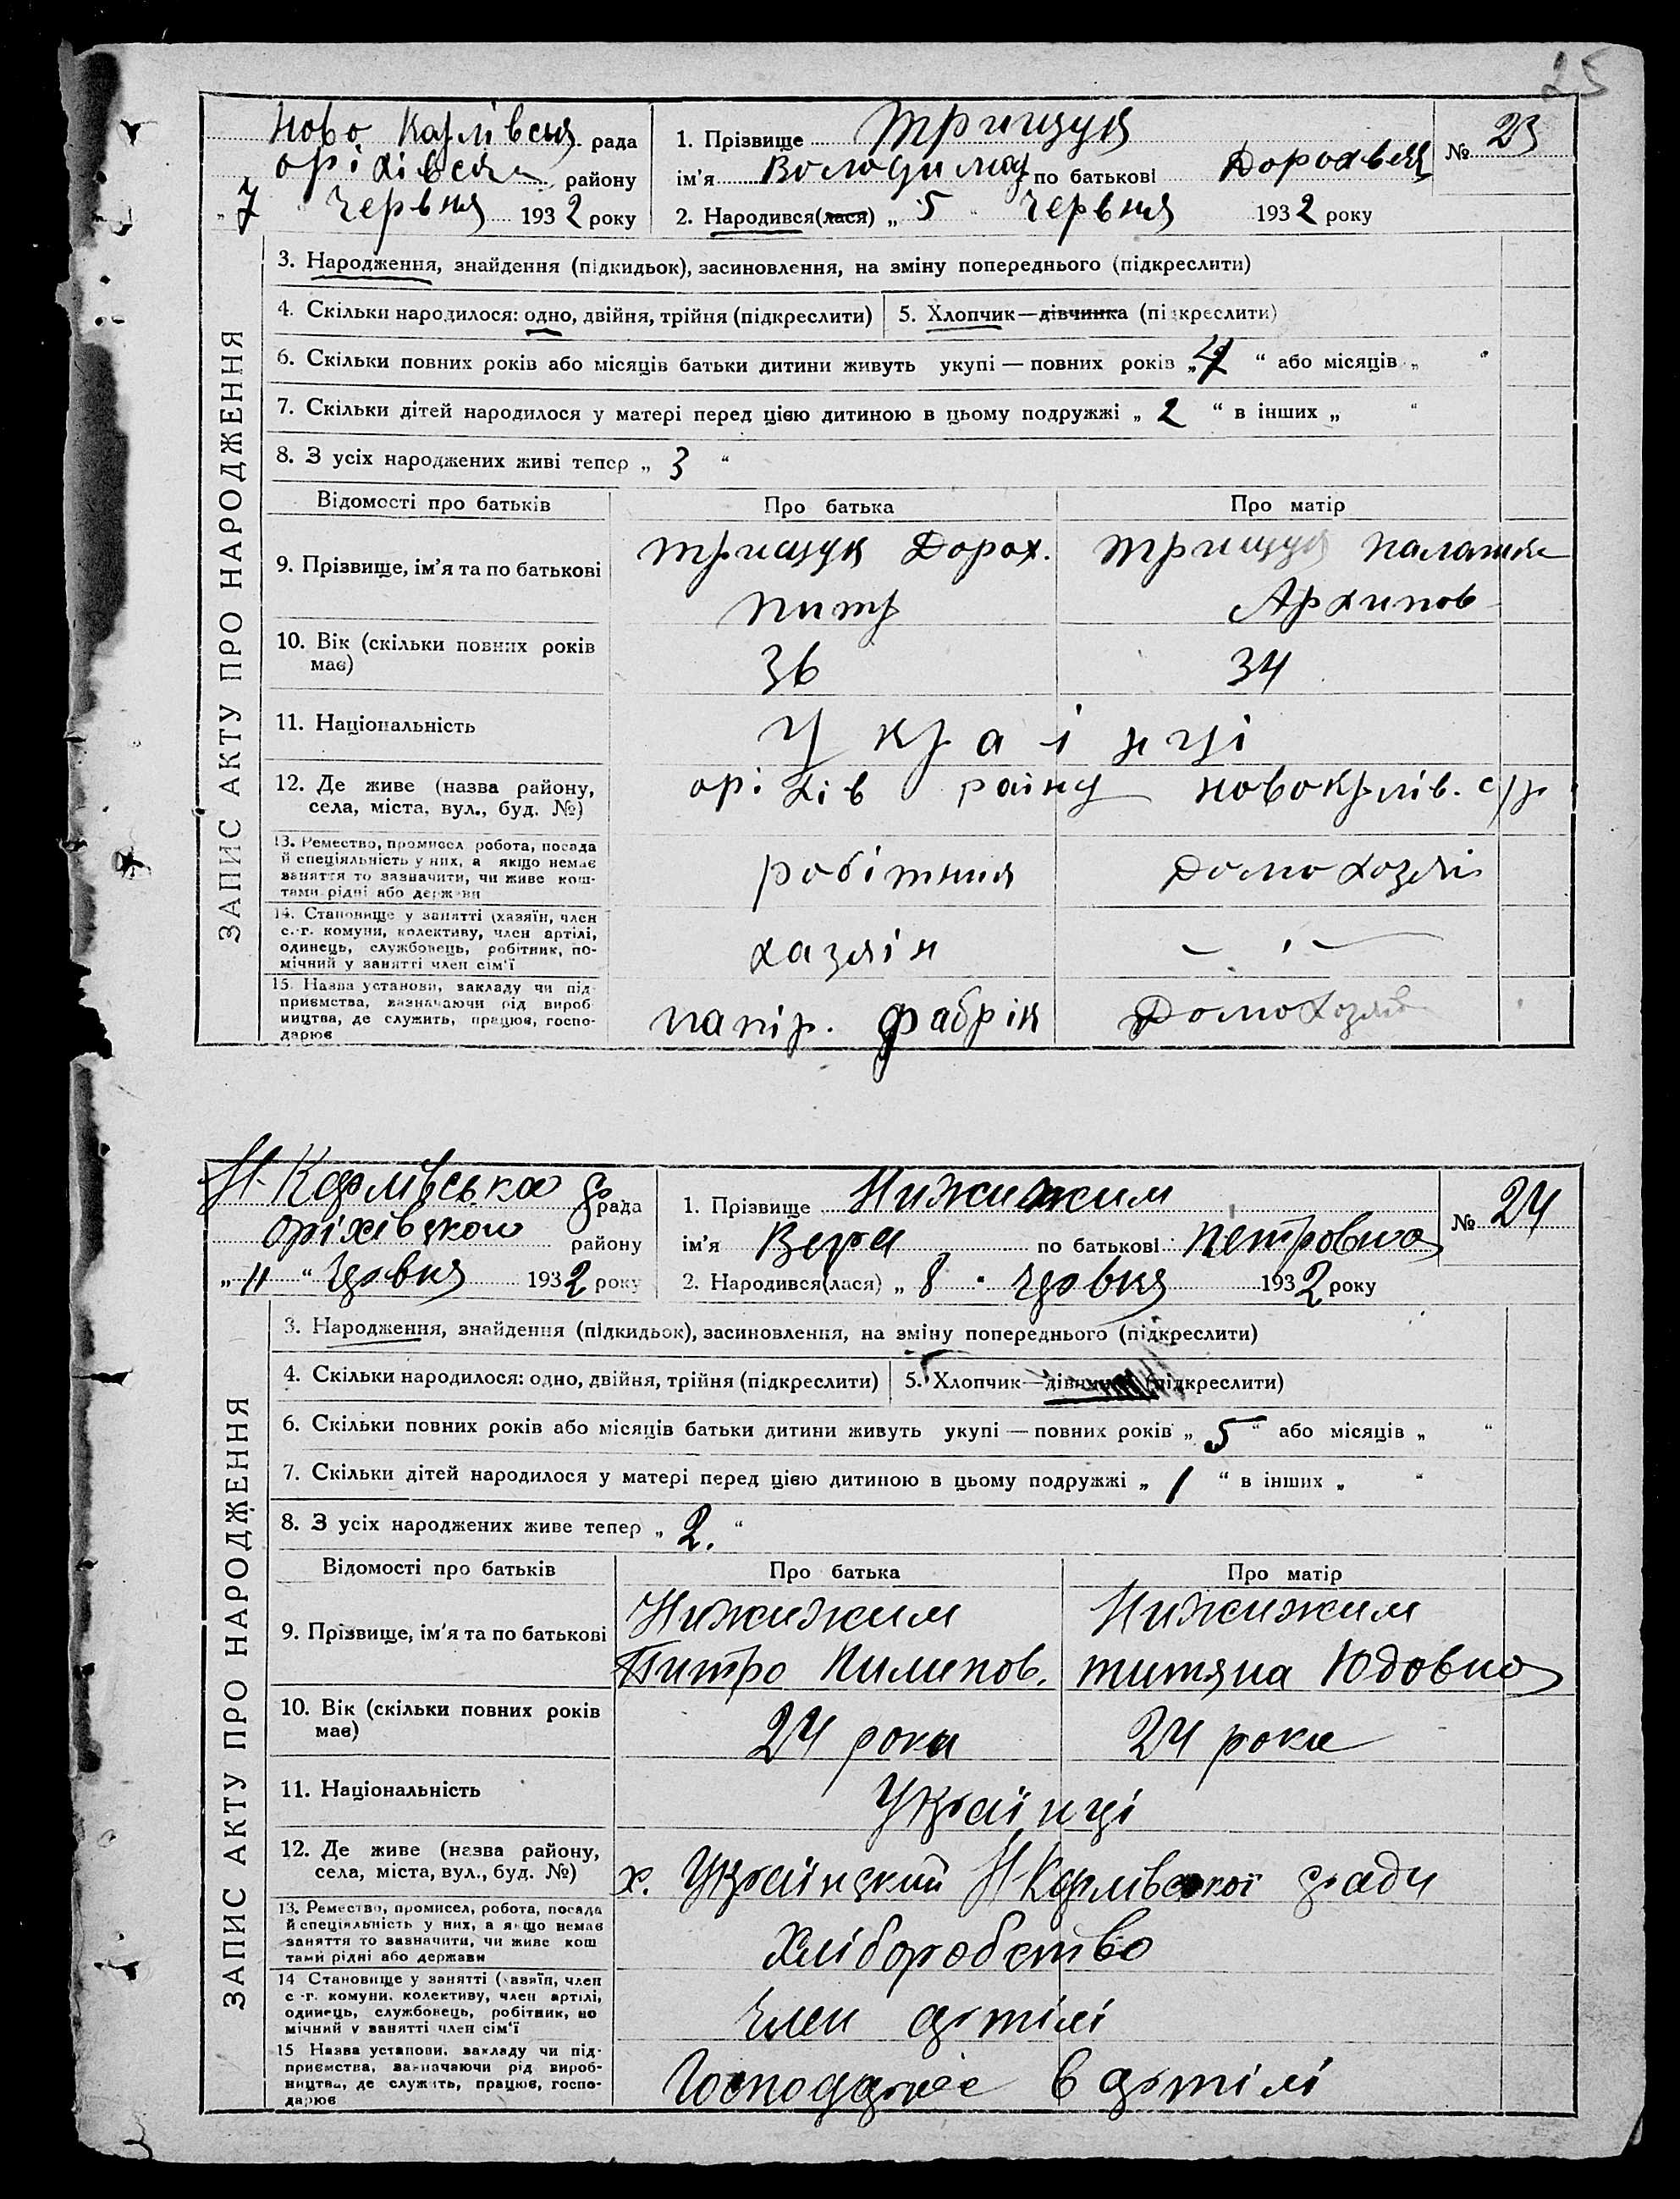 25
Ново Карлівськ рада
оріхівськ району
„ 7 " Червня 1932 року
1. Прізвище Трищук
ім’я Володимир по батькові Дорохвей
№ 23
2. Народився(лася) „ 5 " Червня 1932 року
ЗАПИС АКТУ ПРО НАРОДЖЕННЯ
3. Народження, знайдення (підкидьок), засиновлення, на зміну попереднього (підкреслити)
4. Скільки народилося: одно, двійня, трійня (підкреслити)
5. Хлопчик—дівчинка (підкреслити)
6. Скільки повних років або місяців батьки дитини живуть укупі — повних років „ “ або місяців „ “
7. Скільки дітей народилося у матері перед цією дитиною в цьому подружжі „ 2 “ в інших „ “
8. З усіх народжених живі тепер „ 3 “
Відомості про батьків Про батька Про матір
9. Прізвище, ім’я та по батькові
Трищук Дорох. Трищук Палашка
Питр Архипов
10. Вік (скільки повних років
має)
36 34
11. Національність
Українці
12. Де живе (назва району,
села, міста, вул., буд. №)
оріхів раіну новокрлів. с/р
13. Ремество, промисел робота, посада
й спеціяльність у них, а якщо немає
заняття то зазначити, чи живе кош-
тами рідні або держави
робітник Домохозяй
14. Становище у занятті (хазяїн, член
с.-г. комуни, колективу, член артілі,
одинець, службовець, робітник, по-
мічний у занятті член сім’ї
хазяін — " —
15. Назва установи, закладу чи під-
приємства, зазначаючи рід вироб-
ництва, де служить, працює, госпо-
дарює
папір. фабрік Домохозяй
Н-Карлівська рада
Оріхівського району
„ 11 “ Червня 1932 року
1. Прізвище Нижижим
ім’я Вера по батькові Петровна
№ 24
2. Народився(лася) „ 8 " червня 1932 року
ЗАПИС АКТУ ПРО НАРОДЖЕННЯ
3. Народження, знайдення (підкидьок), засиновлення, на зміну попереднього (підкреслити)
4. Скільки народилося: одно, двійня, трійня (підкреслити)
5. Хлопчик—дівчинка (підкреслити)
6. Скільки повних років або місяців батьки дитини живуть укупі — повних років „ 5 “ або місяців „ “
7. Скільки дітей народилося у матері перед цією дитиною в цьому подружжі „ 1 “ в інших „ “
8. З усіх народжених живе тепер „ 2. “
Відомості про батьків Про батька Про матір
9. Прізвище, ім’я та по батькові
Нижижим Нижижим
Питро Пилипов. титяна Юдовна
10. Вік (скільки повних років
має)
24 роки 24 роки
11. Національність
Українці
12. Де живе (назва району,
села, міста, вул., буд. №)
х. Український Н Карлівської ради
13. Ремество, промисел, робота, посада
й спеціяльність у них, а якщо немає
заняття то зазначити, чи живе кош
тами рідні або держави
Хліборобство
14 Становище у занятті (хазяїн, член
с-г. комуни, колективу, член артілі,
одинець, службовець, робітник, по
мічний у занятті член сім’ї
член артілі
15 Назва установи, закладу чи під-
приємства, зазначаючи рід вироб-
ництва, де служить, працює, госпо-
дарює
Господарює в артілі